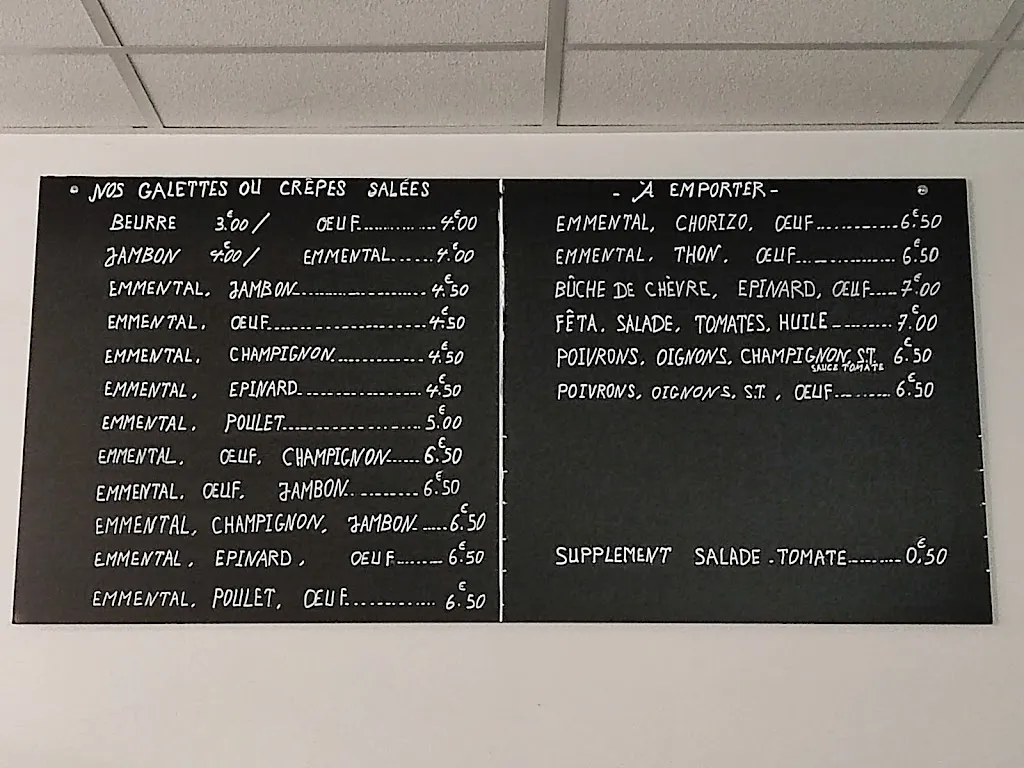 NOS GALETTES OU CRÊPES SALÉES
BEURRE 3.€00 / OEUF.............. 4.€00
JAMBON 4.€00 / EMMENTAL...... 4.€00
EMMENTAL, JAMBON.................... 4.€50
EMMENTAL, OEUF........................ 4.€50
EMMENTAL, CHAMPIGNON.............. 4.€50
EMMENTAL, EPINARD.................... 4.€50
EMMENTAL, POULET...................... 5.€00
EMMENTAL, OEUF, CHAMPIGNON...... 6.€50
EMMENTAL, OEUF, JAMBON.......... 6.€50
EMMENTAL, CHAMPIGNON, JAMBON..... 6.€50
EMMENTAL, EPINARD, OEUF........ 6.€50
EMMENTAL, POULET, OEUF............. 6.€50
- A EMPORTER -
EMMENTAL, CHORIZO, OEUF............. 6.€50
EMMENTAL, THON, OEUF............... 6.€50
BÛCHE DE CHÈVRE, EPINARD, OEUF..... 7.€00
FÊTA, SALADE, TOMATES, HUILE --------- 7.€00
POIVRONS, OIGNONS, CHAMPIGNON, S.T. 6.€50
SAUCE TOMATE
POIVRONS, OIGNONS, S.T., OEUF......... 6.€50
SUPPLEMENT SALADE - TOMATE.......... 0.€50